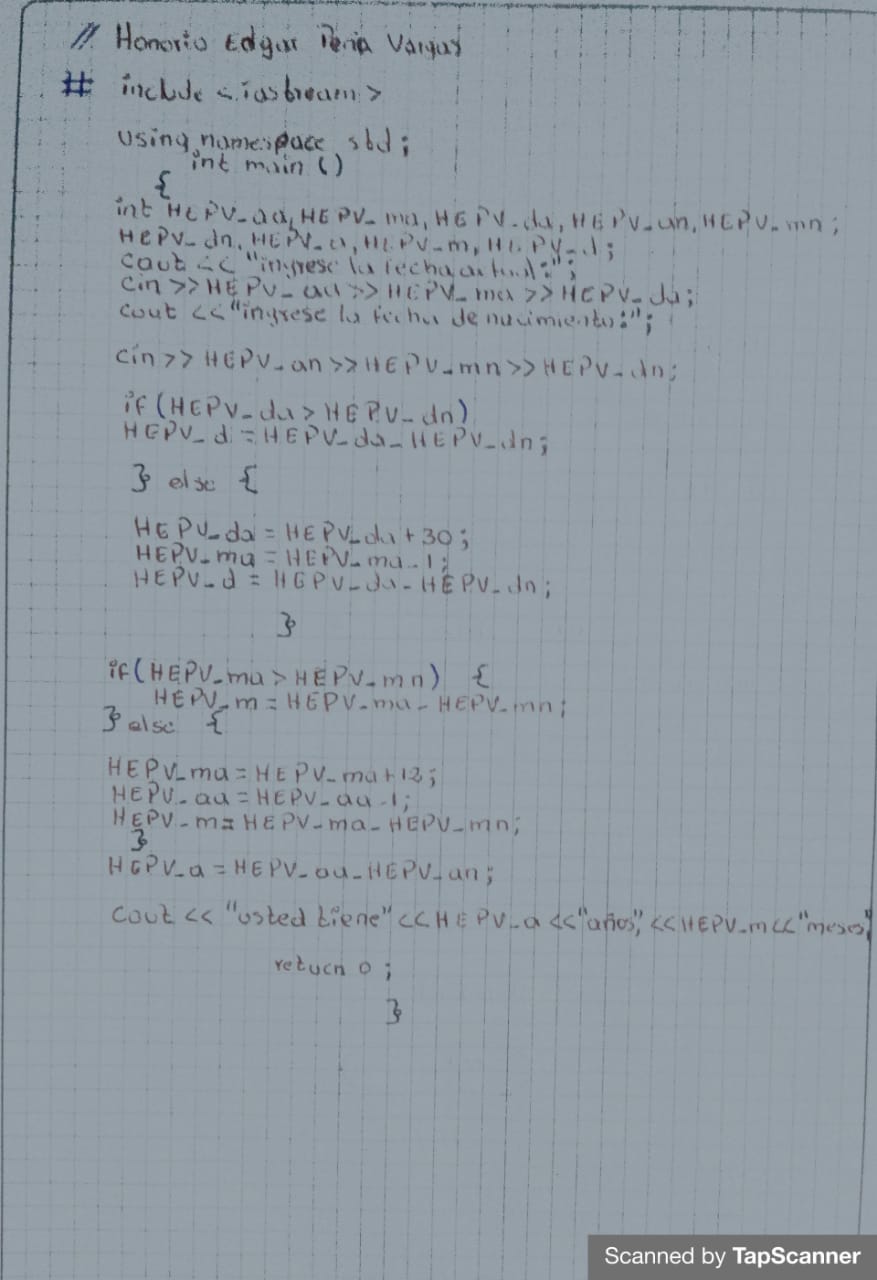 // Honorio Edgar Peña Vargas
# include <iostream>
using namespace std;
int main ()
{
int HEPV_aa, HEPV_ma, HEPV_da, HEPV_an, HEPV_mn;
HEPV_dn, HEPV_a, HEPV_m, HEPV_d;
cout << "ingrese la fecha actual:";
cin >> HEPV_aa >> HEPV_ma >> HEPV_da;
cout << "ingrese la fecha de nacimiento:";
cin >> HEPV_an >> HEPV_mn >> HEPV_dn;
if (HEPV_da > HEPV_dn)
HEPV_d = HEPV_da - HEPV_dn;
} else {
HEPV_da = HEPV_da + 30;
HEPV_ma = HEPV_ma - 1;
HEPV_d = HEPV_da - HEPV_dn;
}
if (HEPV_ma > HEPV_mn) {
HEPV_m = HEPV_ma - HEPV_mn;
} else {
HEPV_ma = HEPV_ma + 12;
HEPV_aa = HEPV_aa - 1;
HEPV_m = HEPV_ma - HEPV_mn;
}
HEPV_a = HEPV_aa - HEPV_an;
cout << "usted tiene" << HEPV_a << "años", << HEPV_m << "meses"
return 0 ;
}
Scanned by TapScanner